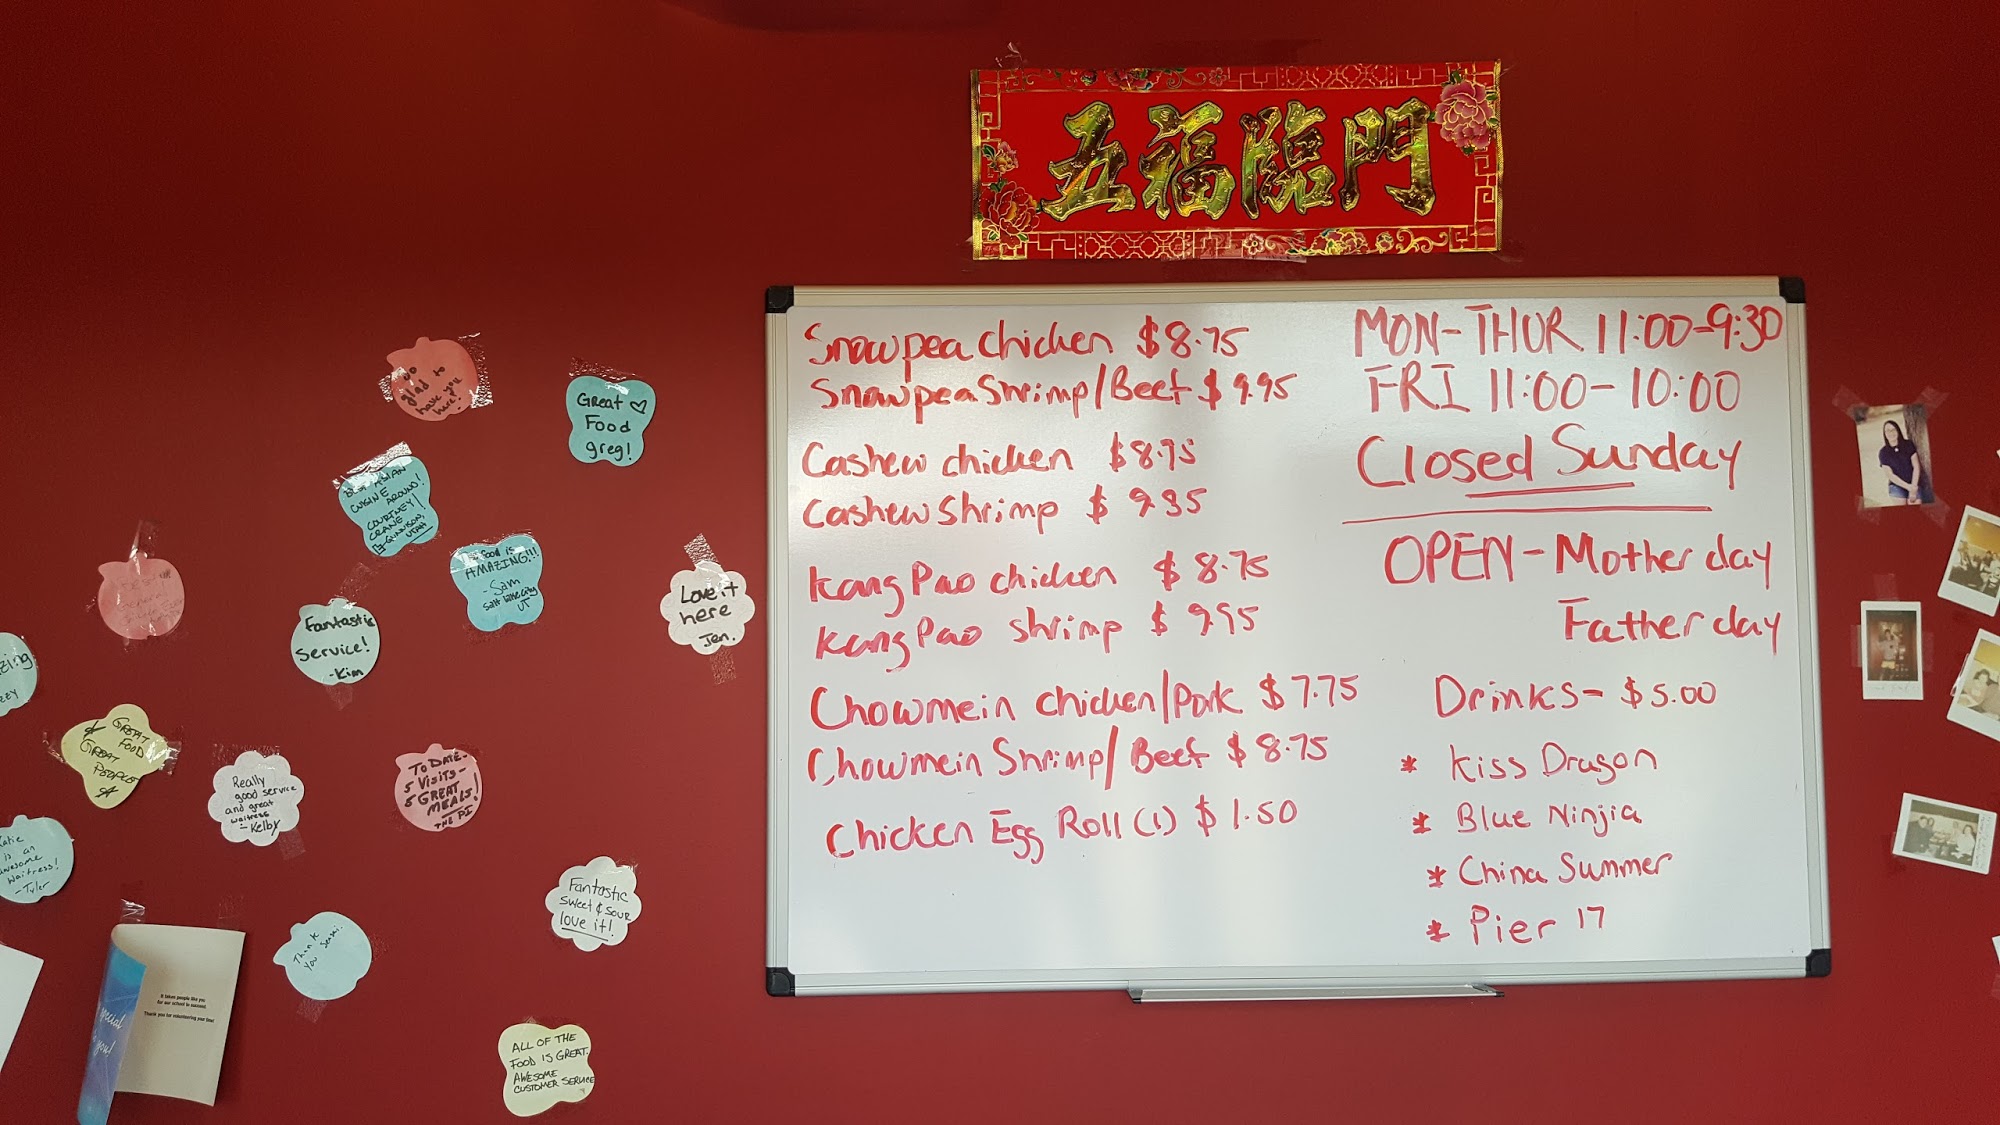 五福臨門
Snowpea chicken $8.75
Snowpea Shrimp/Beef $9.95
Cashew chicken $8.75
Cashew Shrimp $9.95
Kang Pao chicken $8.75
Kang Pao shrimp $9.95
Chowmein chicken/Pork $7.75
Chowmein Shrimp/Beef $8.75
Chicken Egg Roll (1) $1.50
MON-THUR 11:00-9:30
FRI 11:00-10:00
Closed Sunday
OPEN-Mother day
Father day
Drinks- $5.00
* Kiss Dragon
* Blue Ninjia
* China Summer
* Pier 17
so
glad to
have you
here!
Great ♡
Food
greg!
BEST ASIAN
CUISINE AROUND!
COURTNEY!
CRANE
GUNNISON,
UTAH
food is
AMAZING!!!
-Sam
Salt lake city
UT
Love it
here
Jen.
Fantastic
Service!
-Kim
GREAT
FOOD
GREAT
PEOPLE
Really
good service
and great
waitress
-Kelby
TO DATE-
5 VISITS-
5 GREAT
MEALS!
THE PI
Katie
is an
awesome
waitress!
-Tyler
Fantastic
Sweet & Sour
love it!
Thank
you
It takes people like you
for our school to succeed.
Thank you for volunteering your time!
special
you!
ALL OF THE
FOOD IS GREAT.
AWESOME
CUSTOMER SERVICE